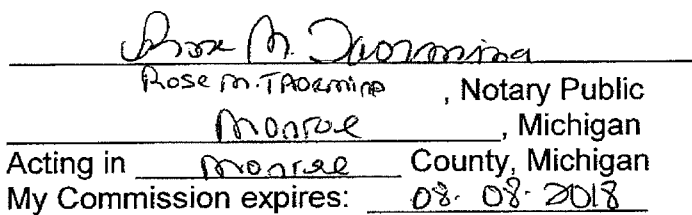 Rose M. Taormina
Rose M. TAORMINA, Notary Public
Monroe, Michigan
Acting in Monroe County, Michigan
My Commission expires: 08. 08. 2018